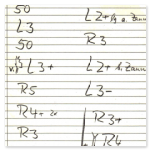 50
L3
50
L3+
R5
R4+ 2x
R3
L2+
R3
L2+
L3-
R3+
R4